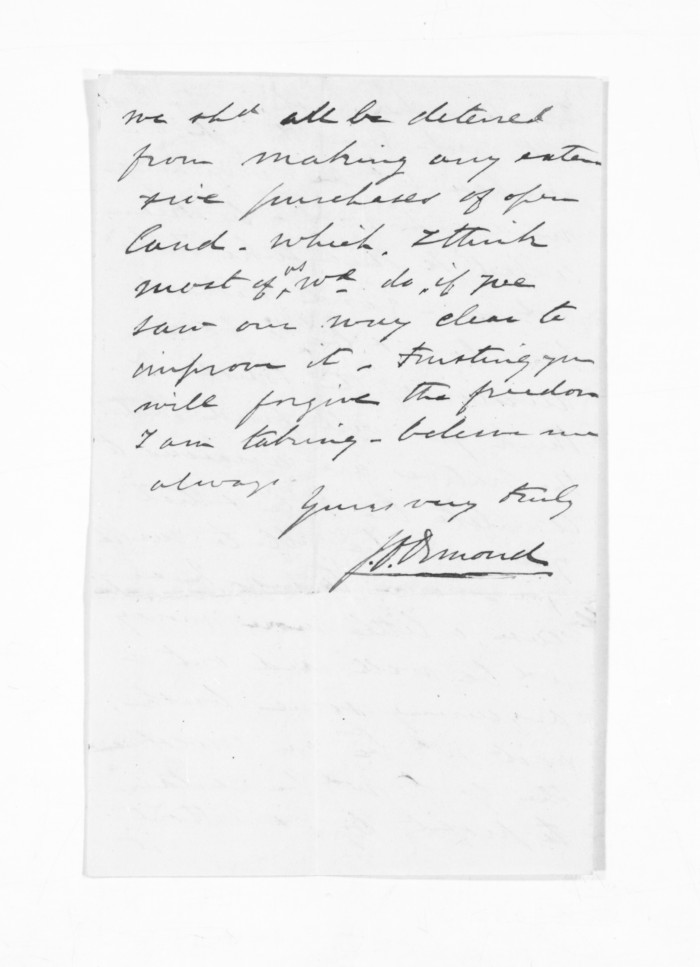 we shd all be deterred
from making any exten
sive purchases of open
land - which, I think
most of us wd do, if we
saw our way clear to
improve it - Trusting you
will forgive the freedom
I am taking - believe me
always
Yours very truly
J.D. Ormond